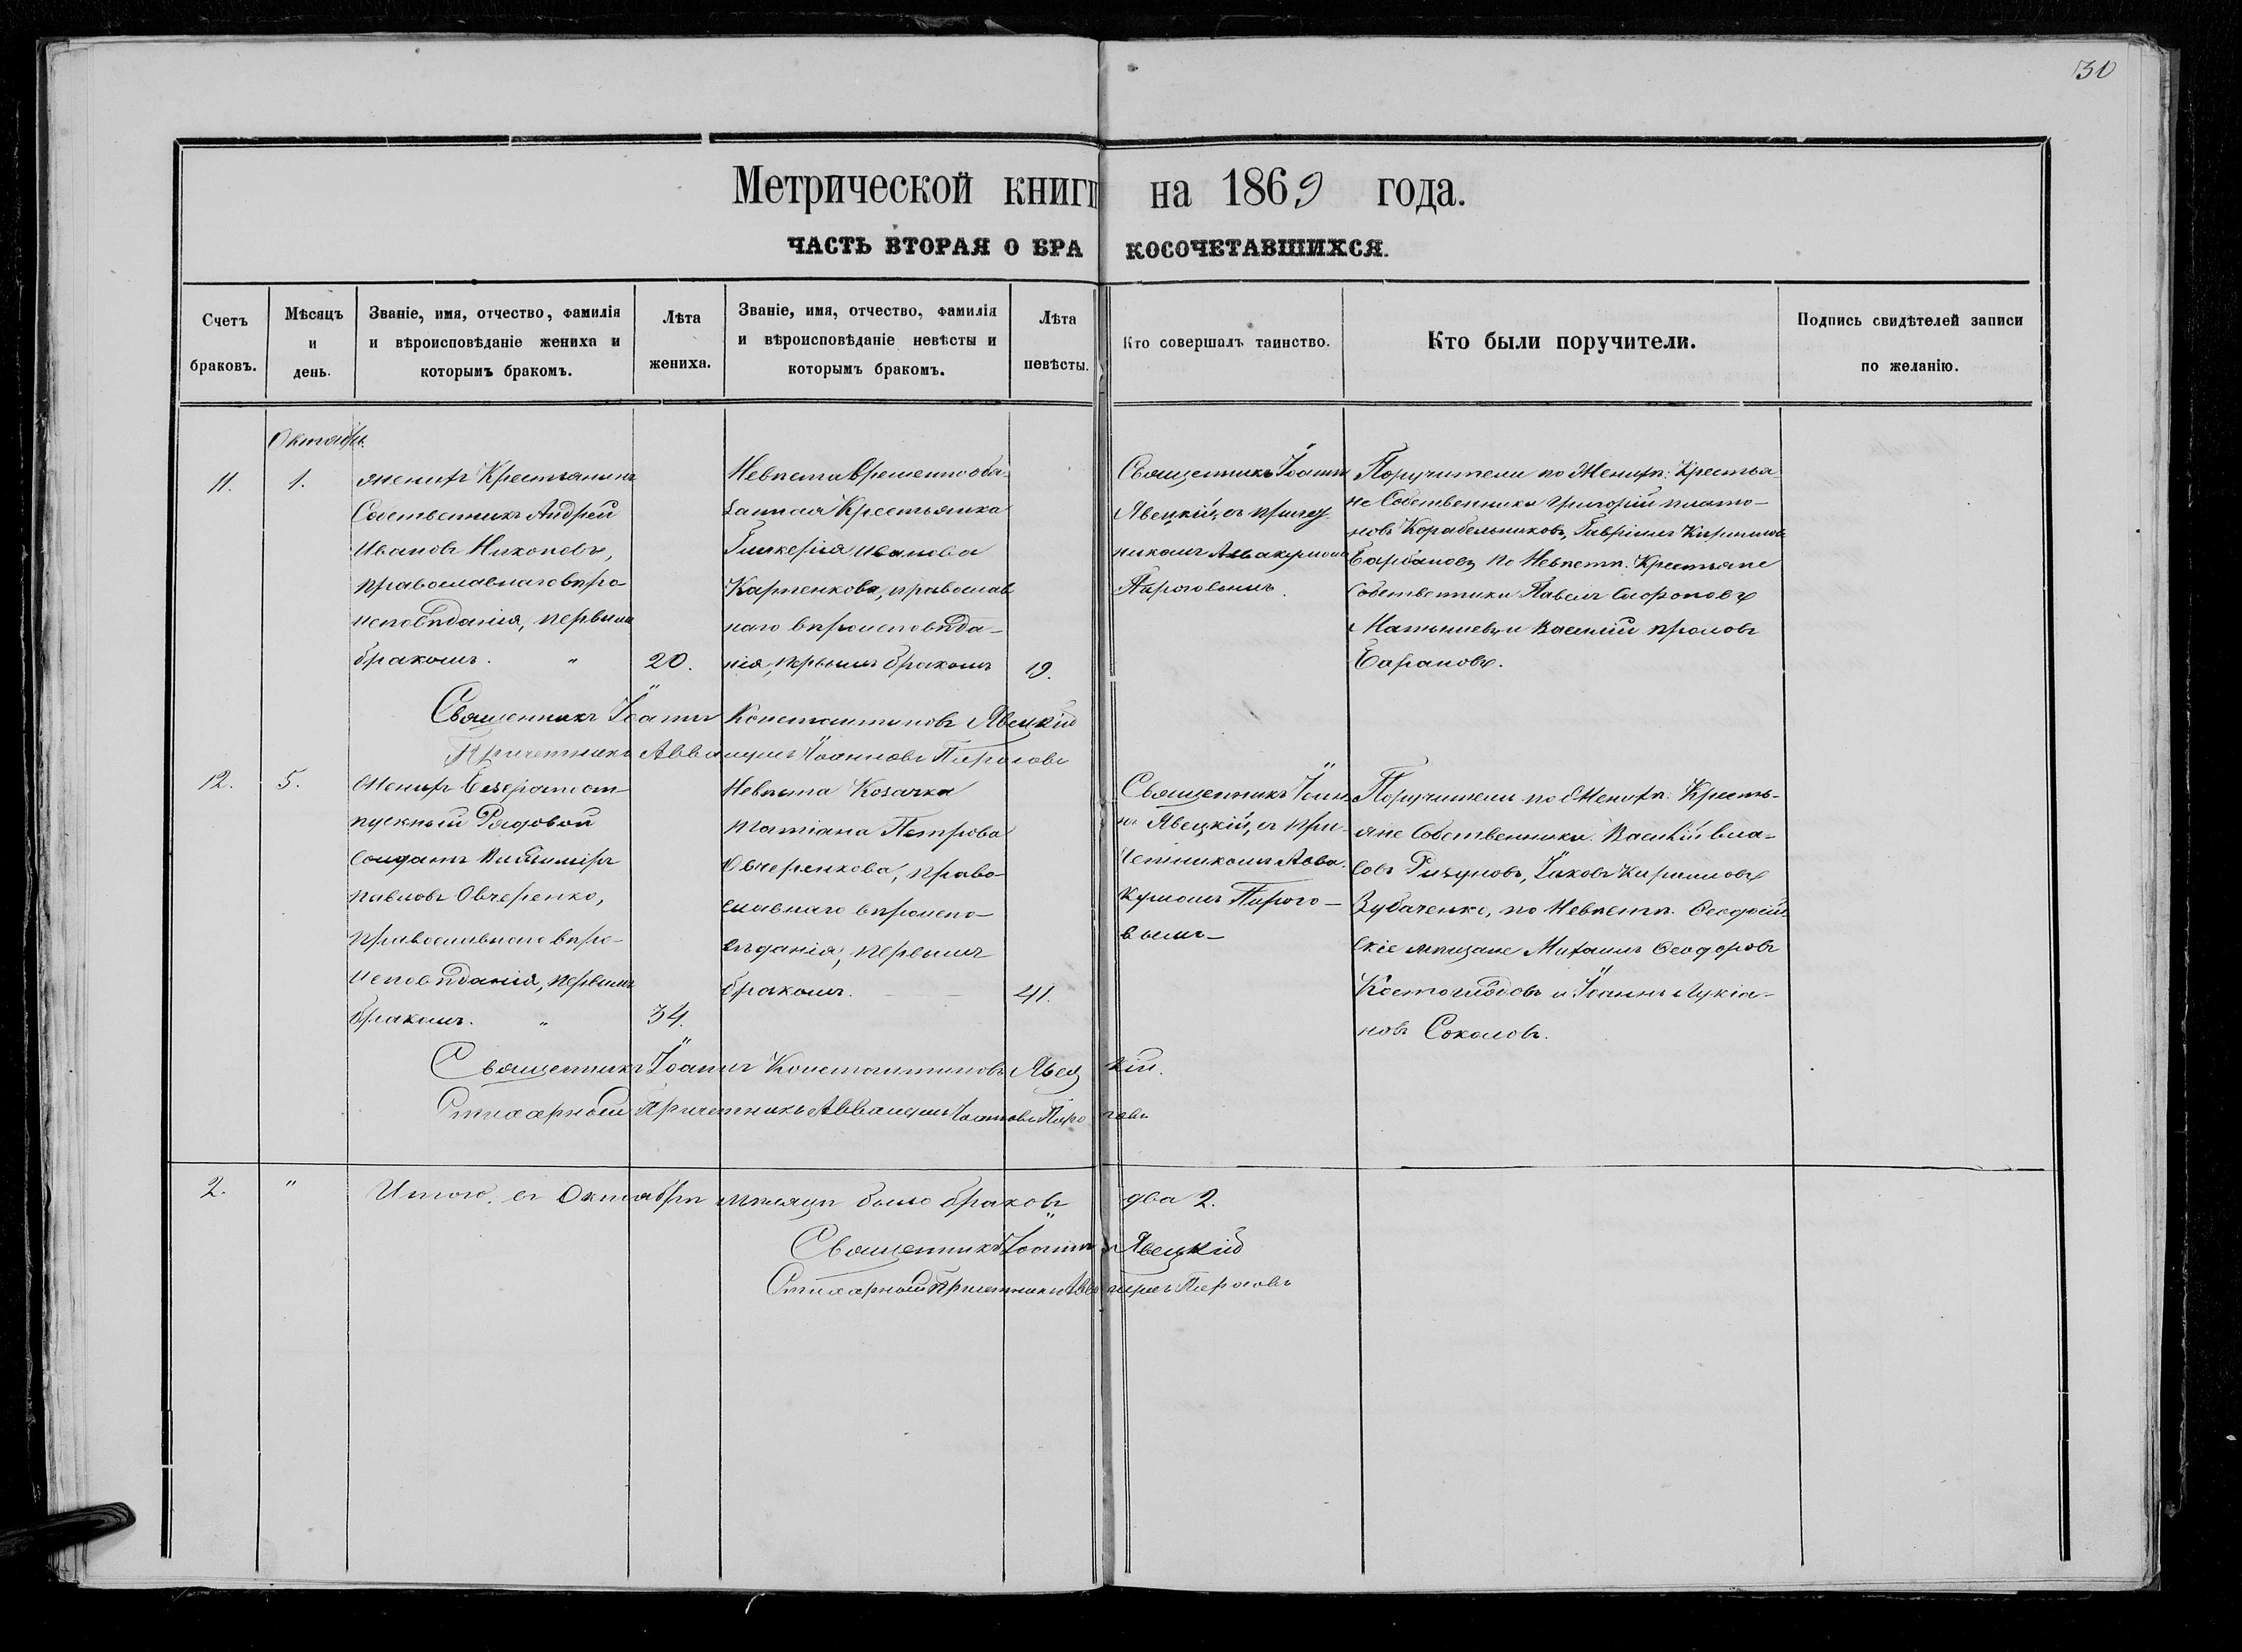 30
Метрической книги на 1869 года.
ЧАСТЬ ВТОРАЯ О БРАКОСОЧЕТАВШИХСЯ.
Счетъ браковъ.
Мѣсяцъ и день.
Званіе, имя, отчество, фамилія
и вѣроисповѣданіе жениха и
которымъ бракомъ.
Лѣта жениха.
Званіе, имя, отчество, фамилія
и вѣроисповѣданіе невѣсты и
которымъ бракомъ.
Лѣта невѣсты.
Кто совершалъ таинство.
Кто были поручители.
Подпись свидѣтелей записи
по желанію.
Октябрь
11.
1.
Женихъ Крестьянинъ
Собственникъ Андрей
Ивановъ
православнаго вѣро-
исповѣданія, первымъ
бракомъ. "
20.
Невѣста временно обя-
занная Крестьянка
Гликерія Иванова
Карпенкова, православ
наго вѣроисповѣда-
нія, первымъ бракомъ
19.
Священникъ Іоаннъ
Явецкій, съ причет
никомъ Аввакумомъ
Пироговымъ.
Поручители по Женихѣ: Крестья-
не Собственники Григорій плато-
новъ Корабельниковъ, Гавріилъ Кирилловъ
по Невѣстѣ. Крестьяне
Собственники Павелъ
и Василій
Барановъ.
Священникъ Іоаннъ Константиновъ Явецкій
Причетникъ Аввакумъ Іоанновъ Пироговъ
12.
5.
Женихъ Безсрочноот-
пускный Рядовой
Солдатъ Владиміръ
павловъ Овчеренко,
православнаго вѣро-
исповѣданія, первымъ
бракомъ. "
34.
Невѣста Козачка
татіана Петрова
Овчеренкова, право-
славнаго вѣроиспо-
вѣданія, первымъ
бракомъ.
41.
Священникъ Іоан-
нъ Явецкій, съ при-
четникомъ Авва-
кумомъ Пирого-
вымъ
Поручители по Женихѣ: Кресть-
яне Собственники. Василій Вла-
совъ Ризуновъ, Іаковъ Кирилловъ
Зубаченко, по Невѣстѣ. Ѳеодосій
скіе мѣщане Михаилъ Ѳеодоровъ
Костоглодовъ и Іоаннъ Лукіа-
новъ Соколовъ.
Священникъ Іоаннъ Константиновъ Явецкій.
Стихарный Причетникъ Аввакумъ Іоанновъ Пироговъ
2.
"
Итого, въ Октябрѣ мѣсяцѣ было браковъ два 2.
Священникъ Іоаннъ Явецкій
Стихарный причетникъ Аввакумъ Пироговъ